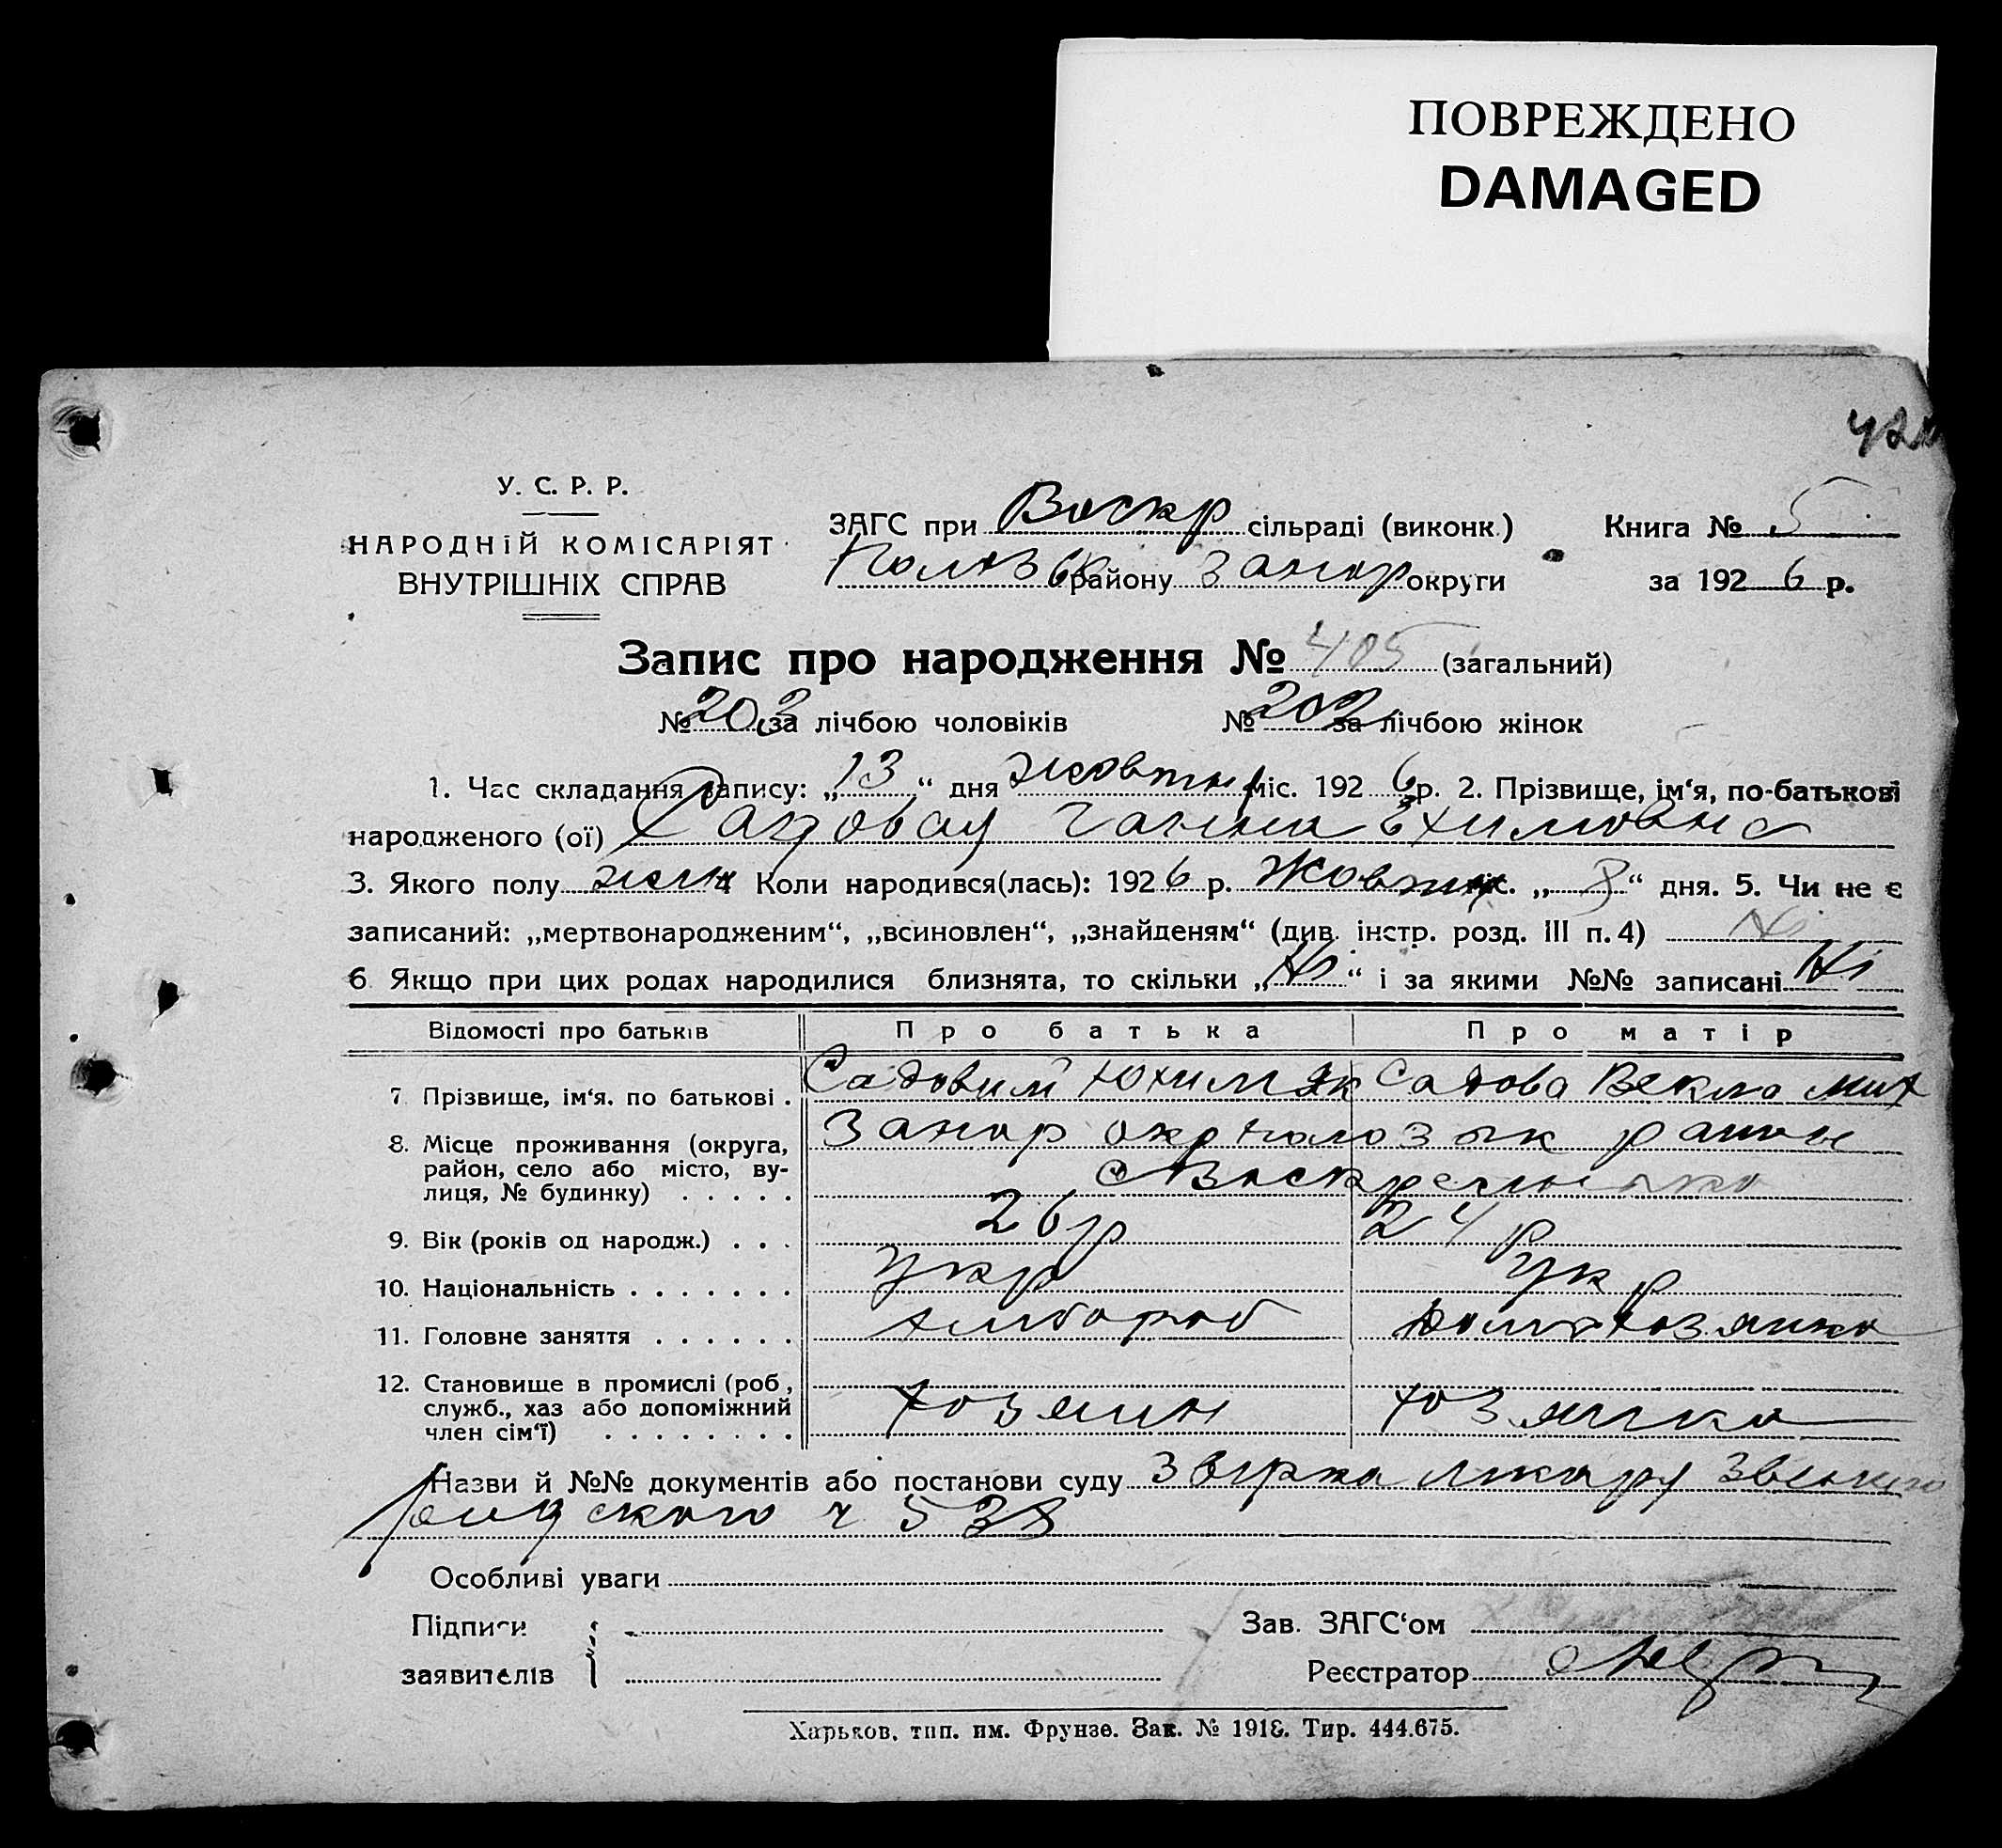 ПОВРЕЖДЕНО
DAMAGED
У. С. Р. Р.
НАРОДНІЙ КОМІСАРІЯТ
ВНУТРІШНІХ СПРАВ
ЗАГС при Воскр сільраді (виконк.)
району Запор округи
Книга № 5
за 1926 р.
Запис про народження № 405 (загальний)
№ 203 за лічбою чоловіків № 202 за лічбою жінок
1. Час складання запису: „13“ дня жовтня міс. 1926 р. 2. Прізвище, ім‘я, по-батькові
народженого (ої) Садовая Ганна Юхимовна
3. Якого полу жен 4 Коли народився(лась): 1926 р. Жовтня міс. „3“ дня. 5. Чи не є
записаний: „мертвонародженим“, „всиновлен“, „знайденям“ (див. інстр. розд. III п. 4) Ні
6 Якщо при цих родах народилися близнята, то скільки „Ні“ і за якими №№ записані Ні
Відомості про батьків Про батька Про матір
7 Прізвище, ім‘я. по батькові . Садовий Юхим Як Садова Векла Мих
8. Місце проживання (округа, район, село або місто, вулиця, № будинку) . . . . . Запор окр
с Воскресенька
9. Вік (років од народж.) . . . 26 р 24 р
10. Національність . . . . . . . Укр Укр
11. Головне заняття . . . . . . хлібороб домохозяйка
12. Становище в промислі (роб, служб., хаз або допоміжний член сім‘ї) . . . . . . . . хозяин хозяйка
Назви й №№ документів або постанови суду
ч 538
Особливі уваги
Підписи
заявителів
Зав. ЗАГС‘ом
Реєстратор
Харьков, тип. им. Фрунзе. Зак. № 1918. Тир. 444.675.